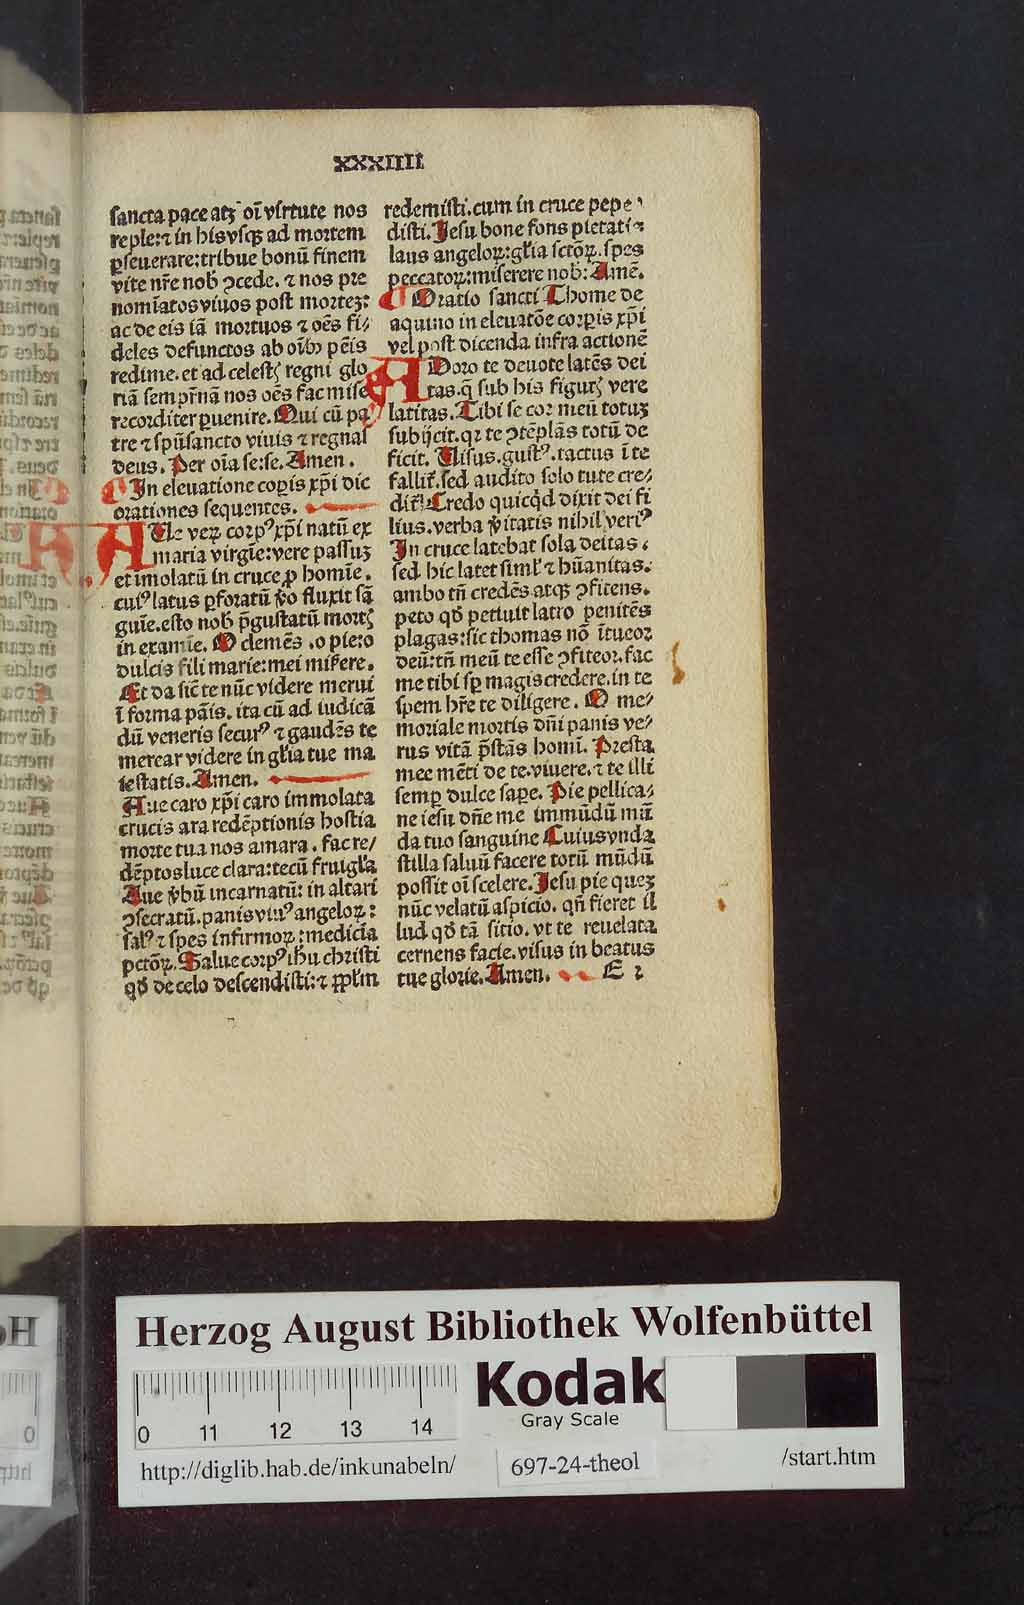 xxxiiii
sancta pace atꝫ oī v̓tute nos
reple: ⁊ in his vsqꝫ ad mortem
ꝑseuerare: tribue bonū finem
vite nr̄e nob̄ ꝯcede. ⁊ nos pre
nomīatos viuos post morteꝫ:
ac de eis iā mortuos ⁊ oēs fi⸗
deles defunctos ab oībꝰ pēis
redime. et ad celestꝭ regni glo
riā sempr̄nā nos oēs fac mise
recorditer ꝑuenire. Qui cū pa
tre ⁊ spū sancto viuis ⁊ regnas
deus. Per oīa se: se. Amen.
In eleuatione corꝑis xp̄i dic
orationes sequentes.
AUe veꝝ corpꝰ xp̄i natū ex
maria virgīe: vere passuꝫ
et īmolatū in cruce ꝓ homīe.
cuiꝰ latus ꝑforatū v̄o fluxit sā
guīe. esto nob̄ p̄gustatū mortꝭ
in examīe. O clemēs. o pie: o
dulcis fili marie: mei misere.
Et da sic̄ te nūc videre merui
ī forma pāis. ita cū ad iudicā
dū veneris securꝰ ⁊ gaudēs te
merear videre in gl̄ia tue ma
iestatis. Amen.
Aue caro xp̄i caro immolata
crucis ara redēptionis hostia
morte tua nos amara. fac re⸗
dēptos luce clara: tecū frui gl̄ia
Aue v̄bū incarnatū: in altari
ꝯsecratū. panis viuꝰ angeloꝝ:
salꝰ ⁊ spes infirmoꝝ: medicīa
pctōꝝ. Salue corpꝰ ih̄u christi
qđ de celo descendisti: ⁊ ppl̄m
redemisti. cum in cruce pepe⸗
disti. Jesu bone fons pietatis
laus angeloꝝ: gl̄ia sctōꝝ. spes
peccatoꝝ: miserere nob̄: Amē.
Oratio sancti Thome de
aquino in eleuatōe corꝑis xp̄i
vel post dicenda infra actionē
ADoro te deuote latēs dei
tas. q̄ sub his figurꝭ vere
latitas. Tibi se cor meū totuꝫ
subijcit. qꝛ te ꝯtēplās totū de
ficit. Uisus. gustꝰ. tactus ī te
fallit̄. sed audito solo tute cre⸗
dit̄. Credo quicqͥd dixit dei fi
lius. verba v̄itatis nihil veriꝰ
In cruce latebat sola deitas.
sed hic latet siml̄ ⁊ hūanitas.
ambo tn̄ credēs atqꝫ ꝯfitens.
peto qđ petiuit latro penitēs
plagas: sic thomas nō ītueor
deū: tn̄ meū te esse ꝯfiteor. fac
me tibi sꝑ magis credere. in te
spem hr̄e te diligere. O me⸗
moriale mortis dn̄i panis ve⸗
rus vitā p̄stās homī. Presta
mee mēti de te. viuere. ⁊ te illi
semꝑ dulce saꝑe. Pie pellica⸗
ne iesu dn̄e me immūdū mū
da tuo sanguine Cuius vnda
stilla saluū facere totū mūdū
possit oī scelere. Jesu pie queꝫ
nūc velatū aspicio. qn̄ fieret il
lud qđ tā sitio. vt te reuelata
cernens facie. visus in beatus
tue glorie. Amen.
E ꝛ
Herzog August Bibliothek Wolfenbüttel
0 11 12 13 14
Kodak
Gray Scale
http://diglib.hab.de/inkunabeln/
697-24-theol
/start.htm